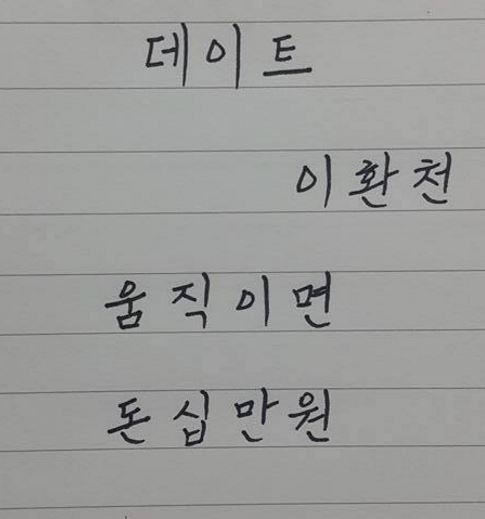 데이트
이환천
움직이면
돈십만원